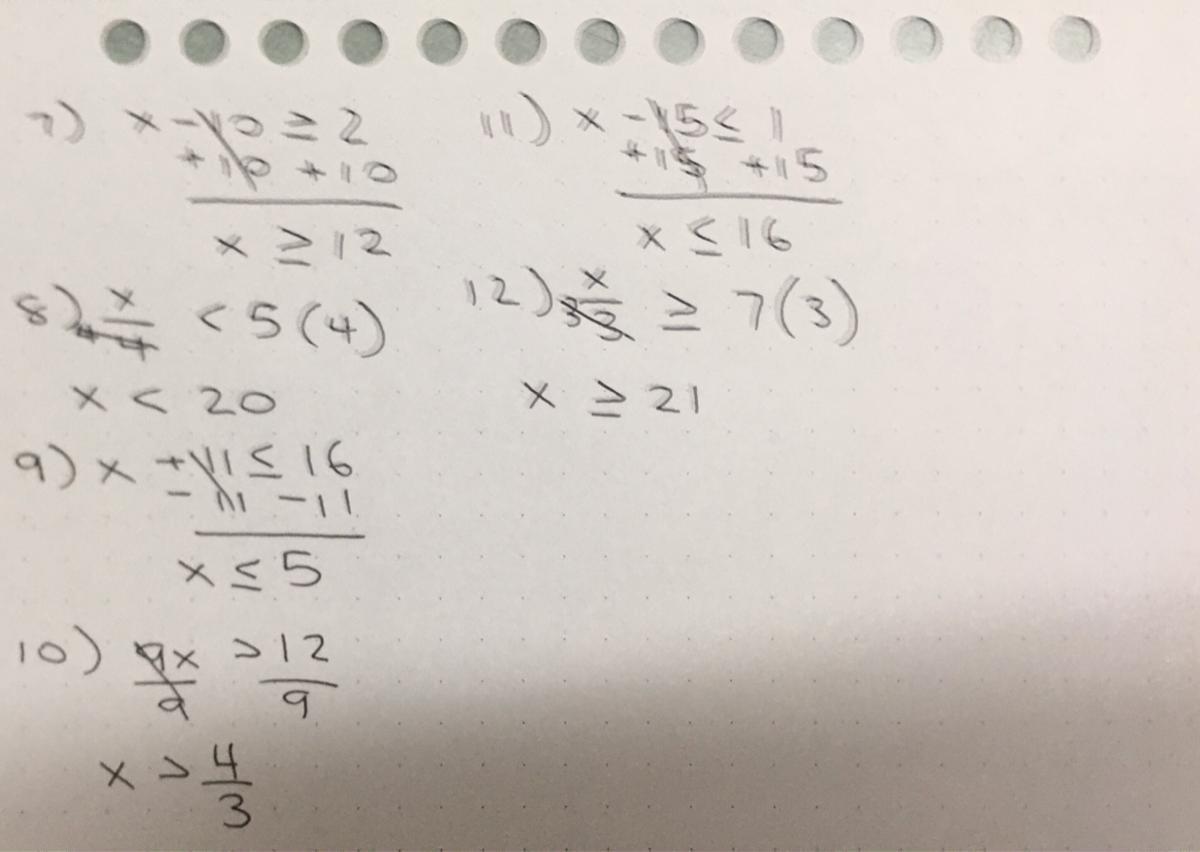 7) x - 10 ≥ 2
+10 +10
x ≥ 12
8) 4 x/4 < 5(4)
x < 20
9) x + 11 ≤ 16
- 11 - 11
x ≤ 5
10) 9x/9 > 12/9
x > 4/3
11) x - 15 ≤ 1
+15 +15
x ≤ 16
12) 3 x/3 ≥ 7(3)
x ≥ 21